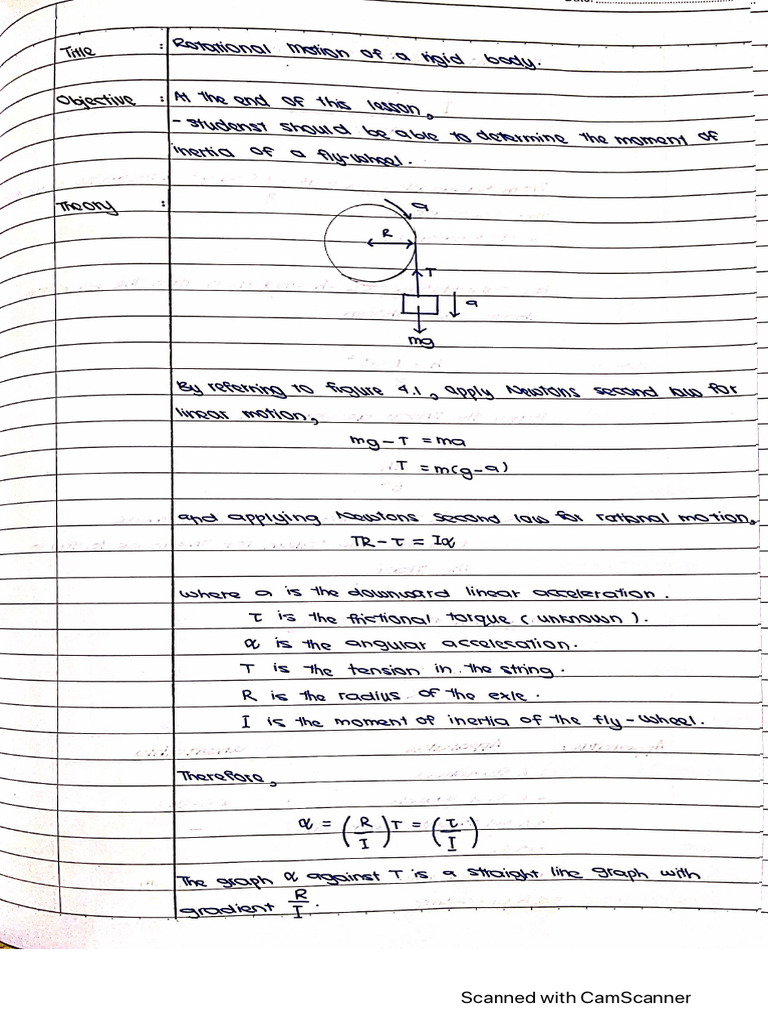 Title : Rotational motion of a rigid body.
Objective : At the end of this lesson,
- studenst should be able to determine the moment of
inertia of a fly-wheel.
Theory :
a
R
T
a
mg
By referring to figure 4.1, apply Newtons second law for
linear motion,
mg - T = ma
T = m(g-a)
and applying Newtons second law for rational motion,
TR - τ = Iα
where a is the downward linear acceleration.
τ is the frictional torque ( unknown ).
α is the angular acceleration.
T is the tension in the string.
R is the radius of the exle.
I is the moment of inertia of the fly-wheel.
Therefore,
α = (R/I)T = (τ/I)
The graph α against T is a straight line graph with
gradient R/I.
Scanned with CamScanner